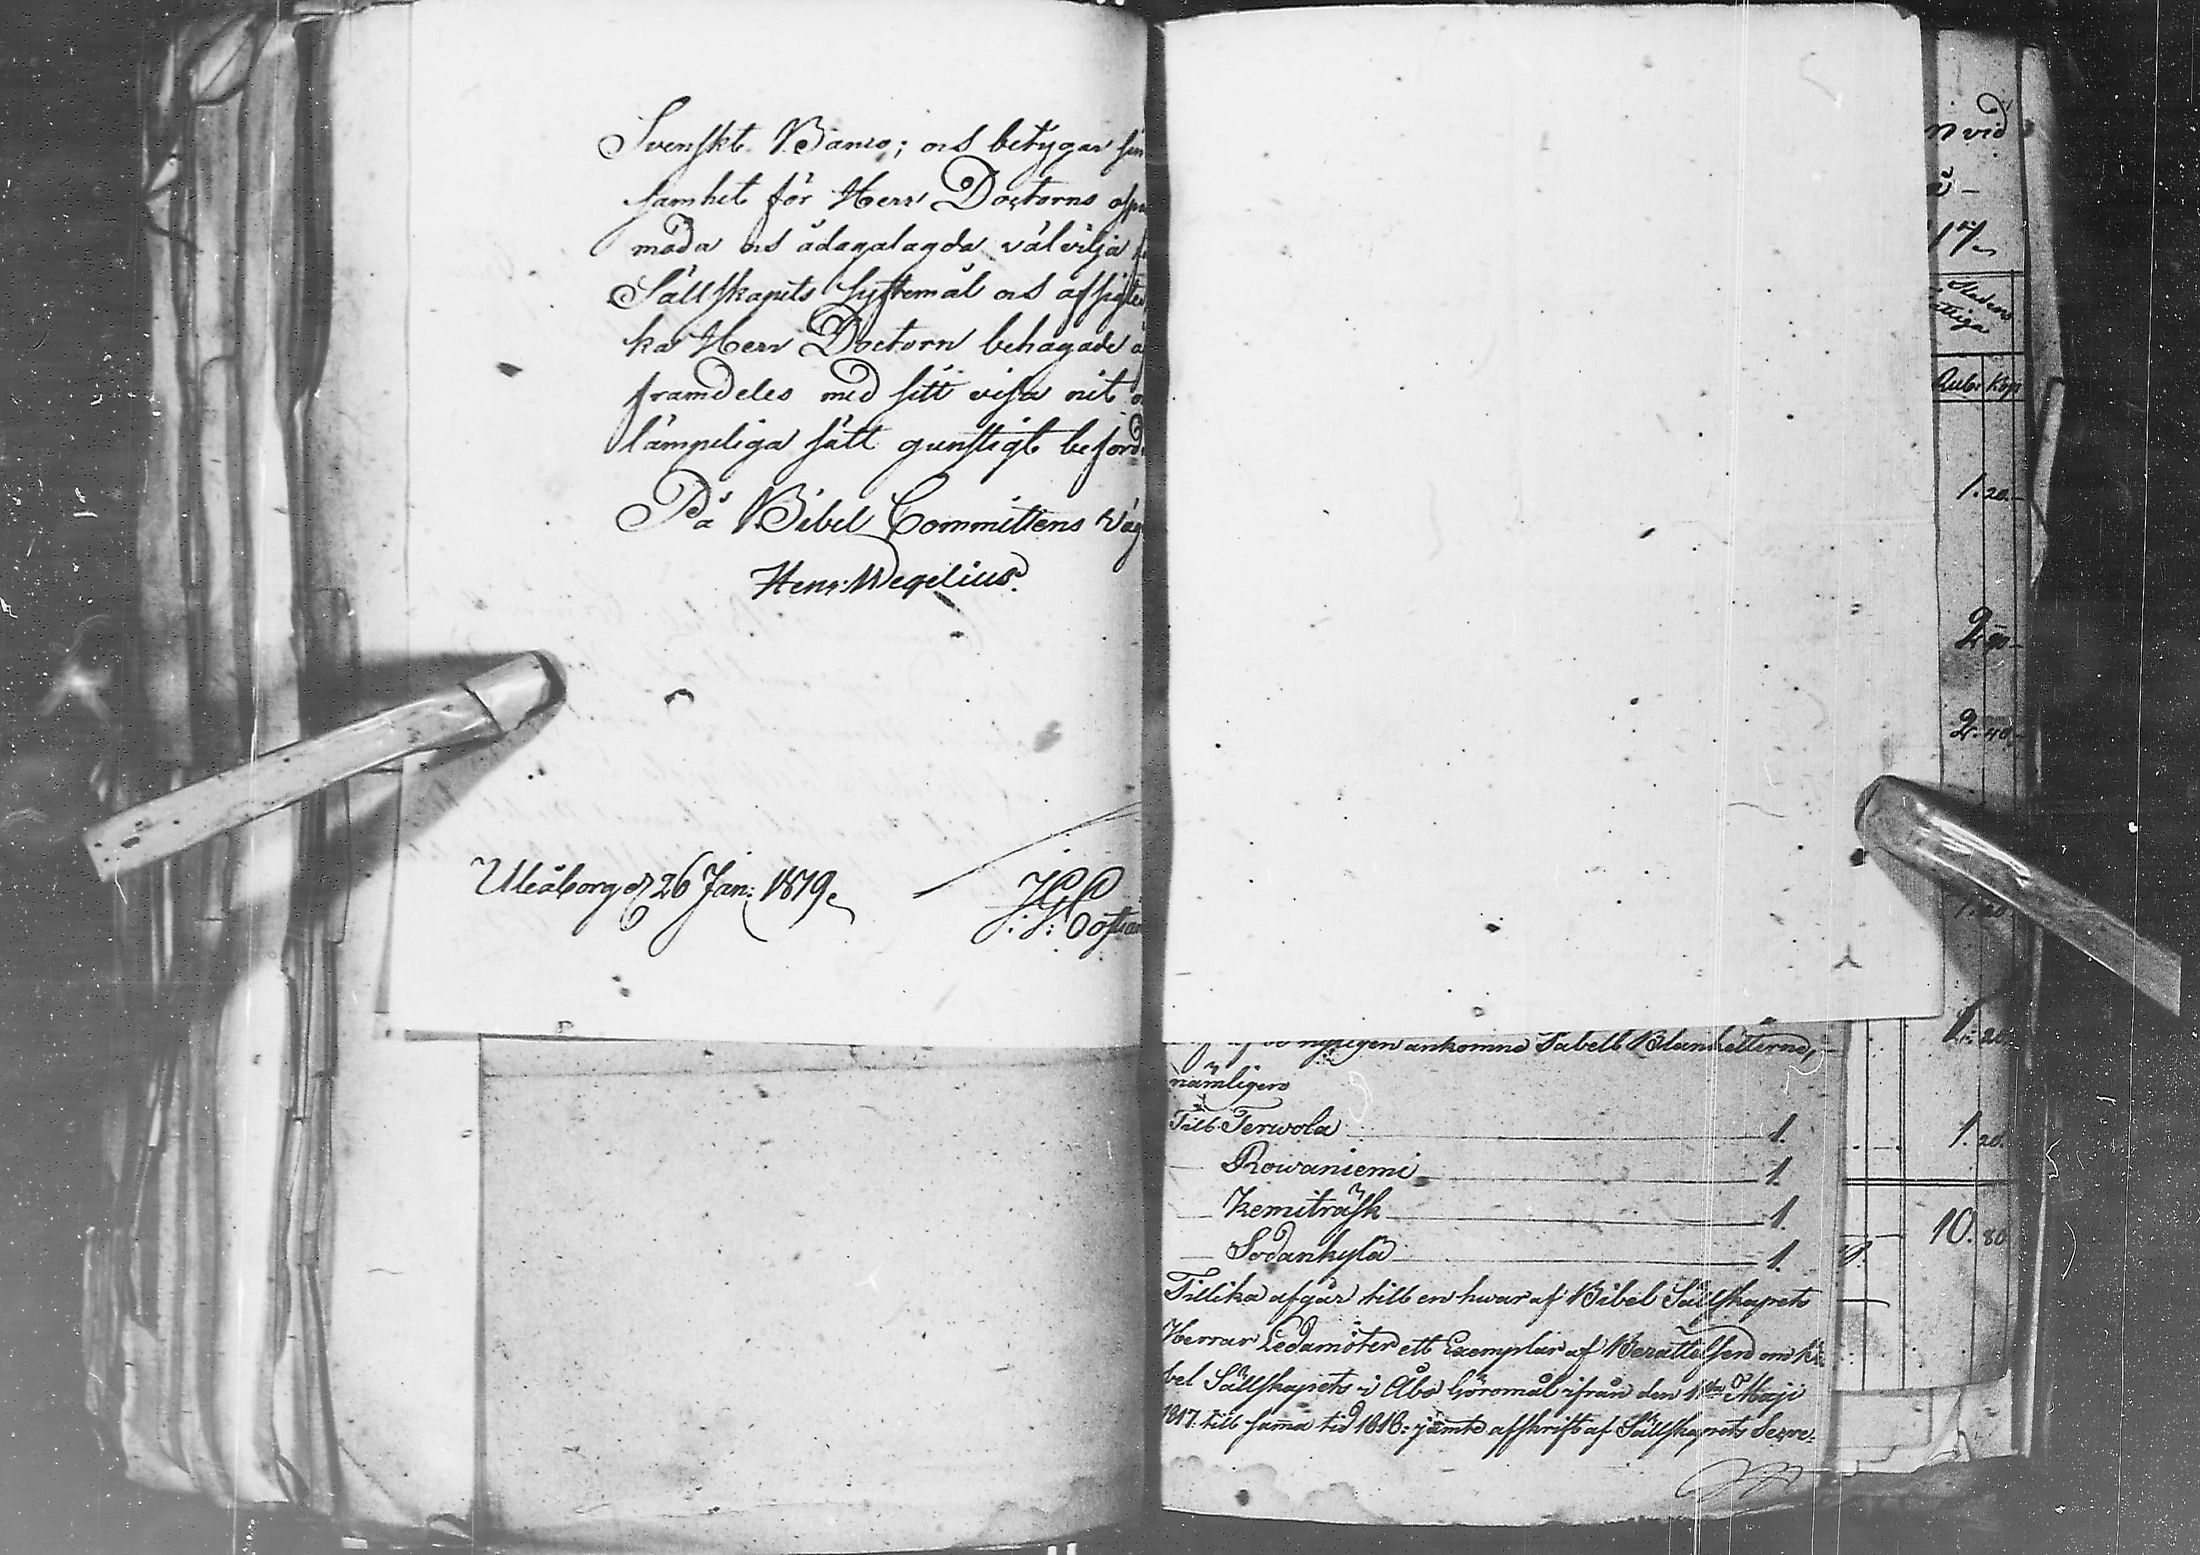 Svenskt Banco; och betygar sin
samhet för Herr Doctorns ospa
möda och ådagalagda välvilja
Sällskapets syftemål och afsigte
ka Herr Doctorn behagade
framdeles med sitt visa nit
lämpeliga sätt gunstigt beford
På Bibel Committens väg
Henr: Wegelius.
Uleåborg d 26 Jan: 1819.
J: G: Costian
nyligen ankomne Tabell Blanketterne,
nämligen
Till Terwola 1.
Rowaniemi 1.
Kemiträsk 1.
Sodankylä 1.
Tillika afgår till en hwar af Bibel Sällskapets
Herrar Ledamöter ett Exemplar af Berättelsen om Bi
bel Sällskapets i Åbo Göromål ifrån den 1sta Maji
1817. till samma tid 1818: jämte afskrift af Sällskapets Secre-
n vid
17.
Stadens
attiga
Rub: Kop
1. 20.
2. 40.
1. 20.
1. 20.
10. 80